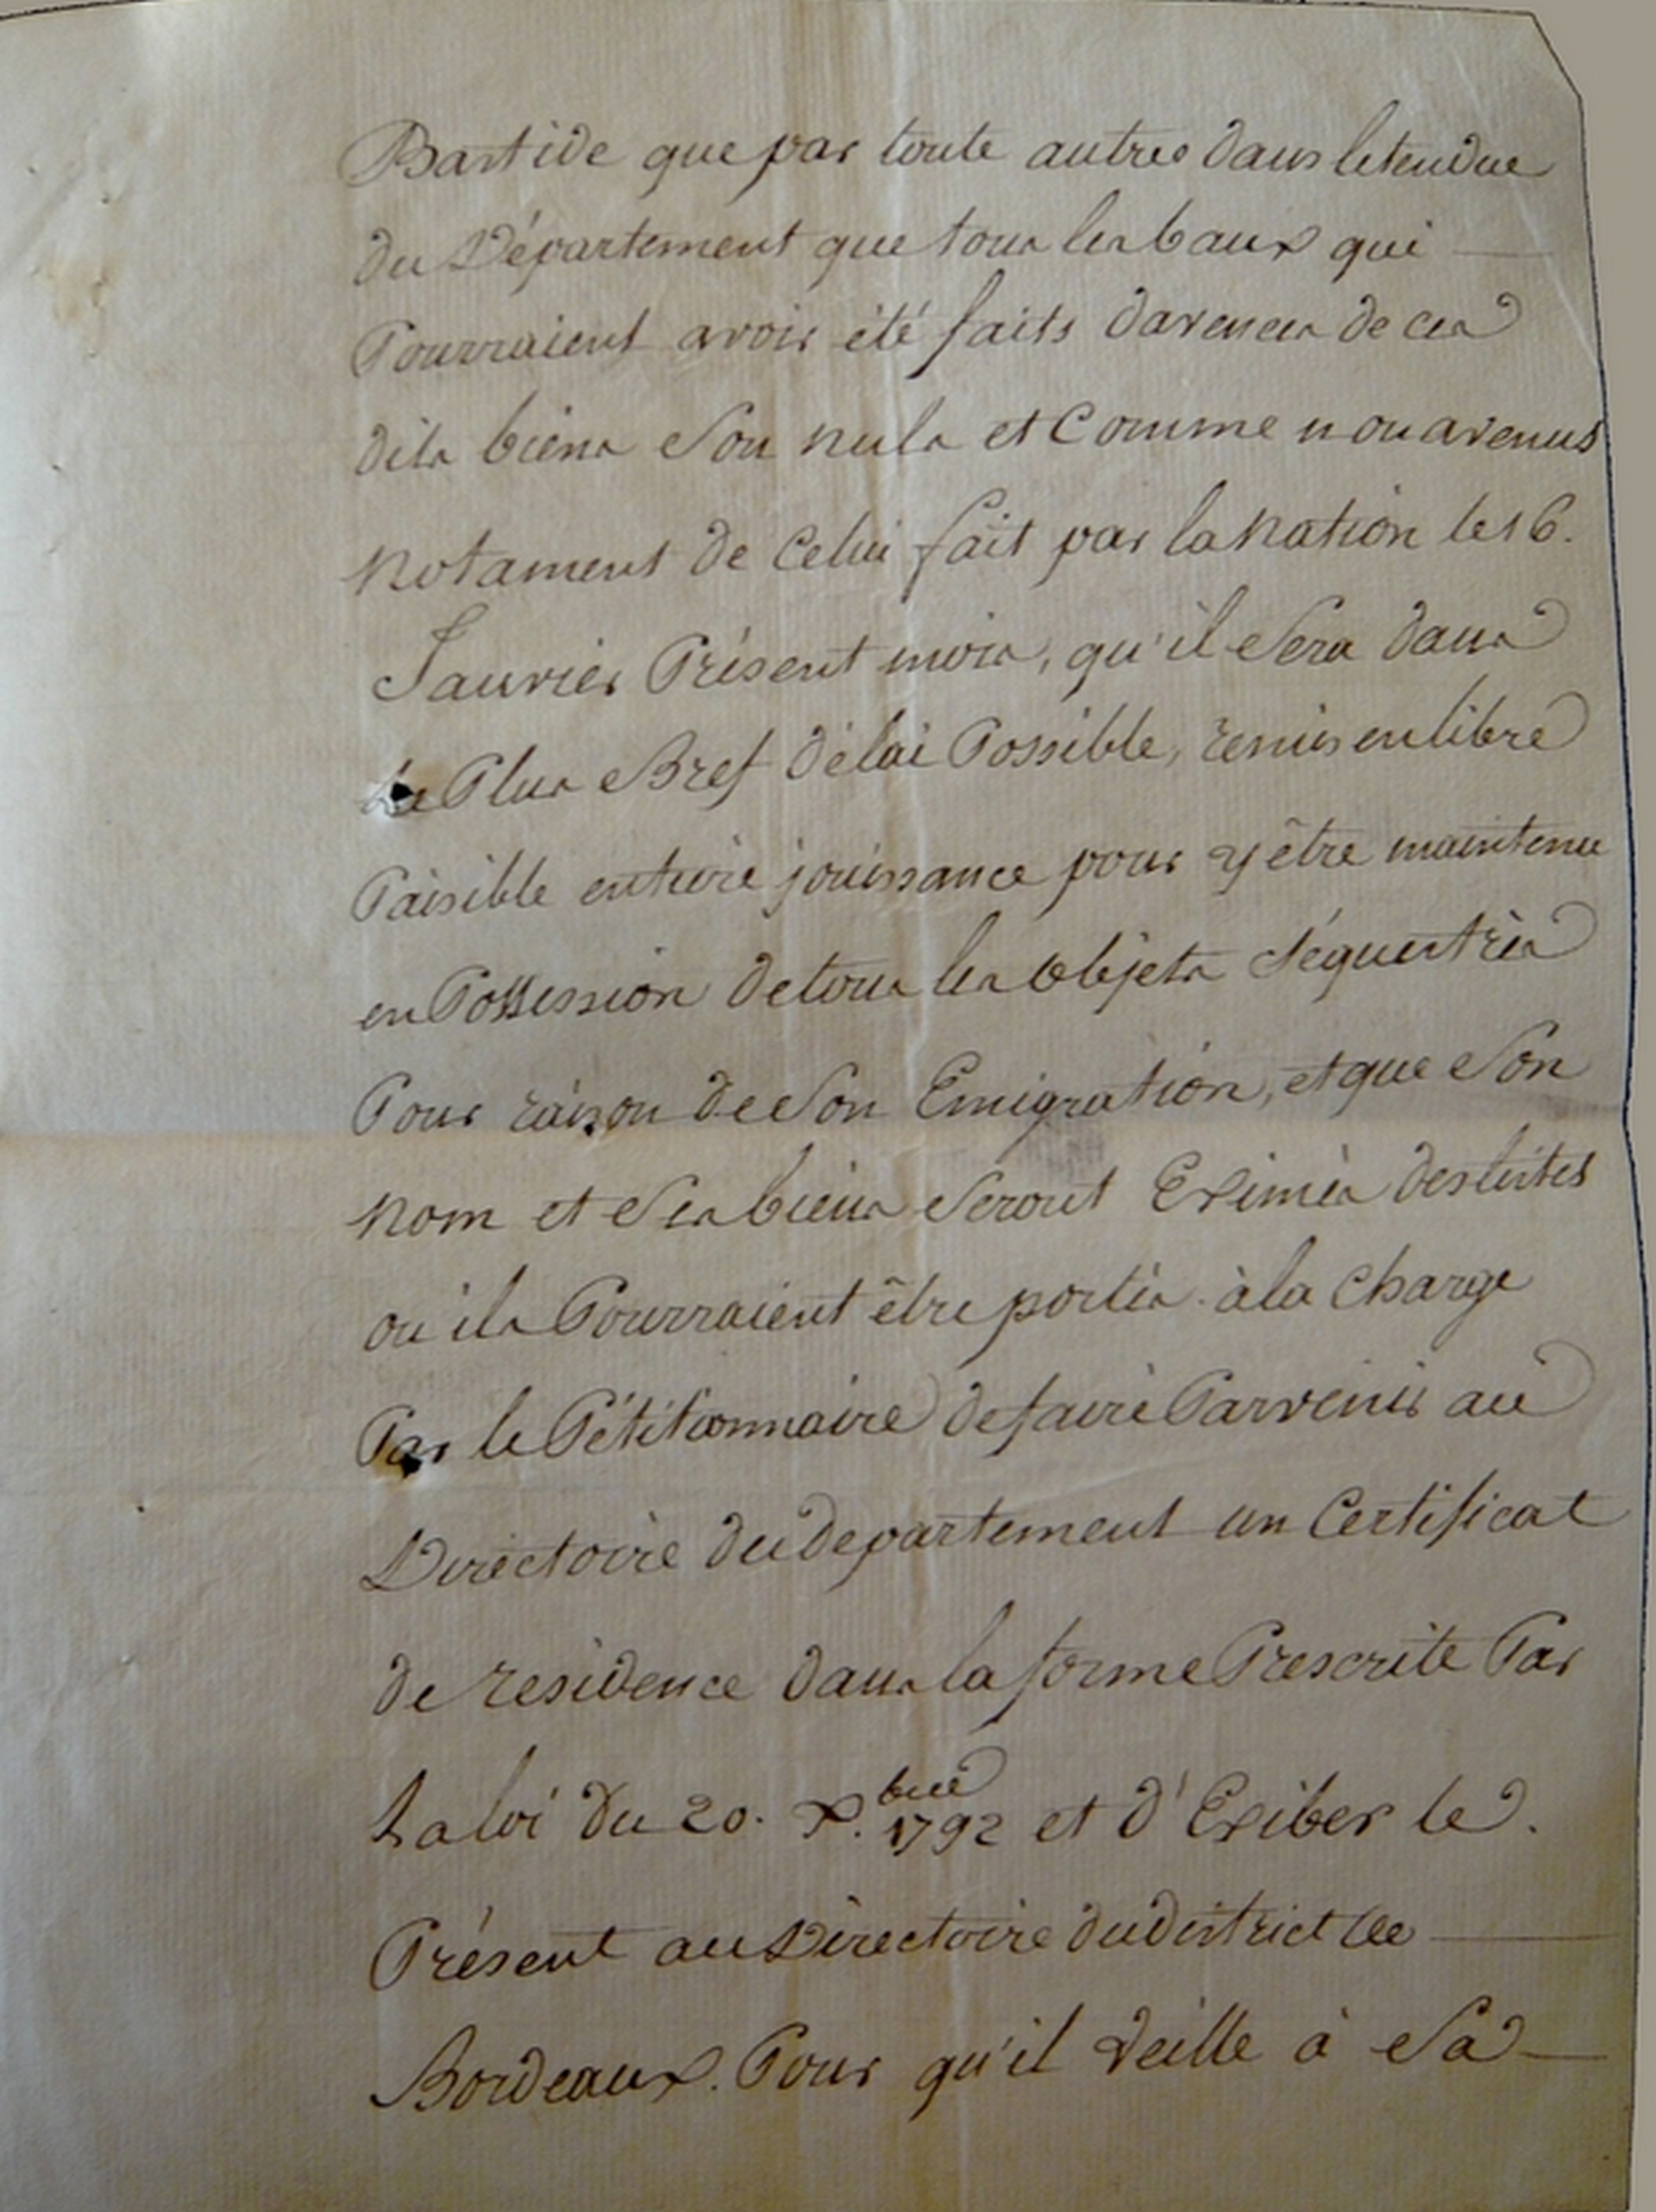 Bastide que par toute autres dans letendue
du Département que tous les baux qui
Pourraient avoir été faits davences de ces
dits biens Son nuls et Comme nonavenus
notament de Celui fait par la Nation le 16.
Janvier Présent mois, qu'il Sera dans
Le Plus Bref délai Possible, remis en libre
Paisible entière jouissance pour y être maintenu
en Possession de tous les objets Séquestrés
Pour raison de Son Emigration, et que Son
nom et Ses biens Seront Eximés des listes
ou ils Pourraient être portés. à la Charge
Par le Pétitionnaire de faire Parvenir au
Directoire du departement un Certificat
de residence dans la forme Prescrite Par
La loi du 20. X.bre 1792 et d'Exiber le.
Présent au Directoire du district de
Bordeaux. Pour qu'il Veille à Sa